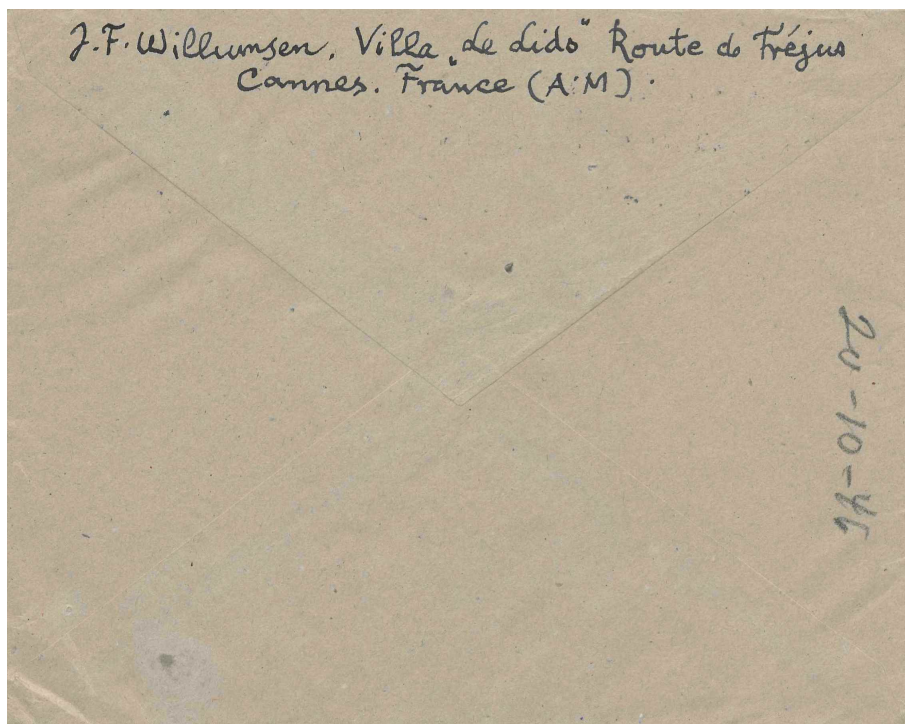 J.F. Willumsen. Villa „Le Lido“ Route de Fréjus
Cannes. France (A.M.)
20-10-46